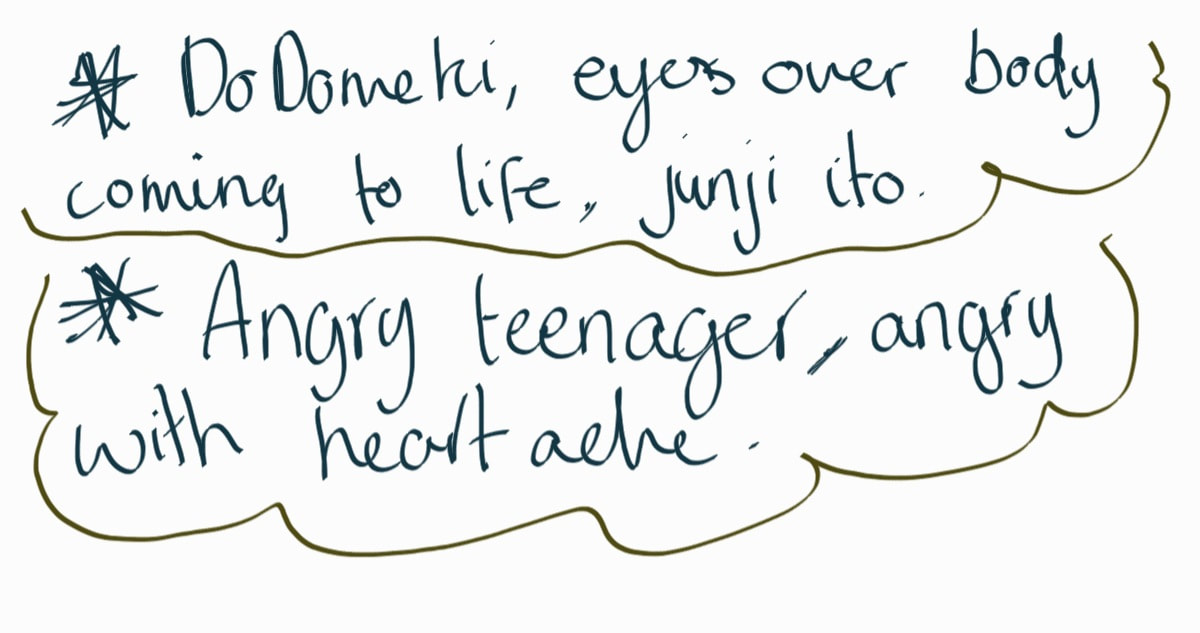 * DoDomeki, eyes over body
coming to life, junji ito.
* Angry teenager, angry
with heart ache.